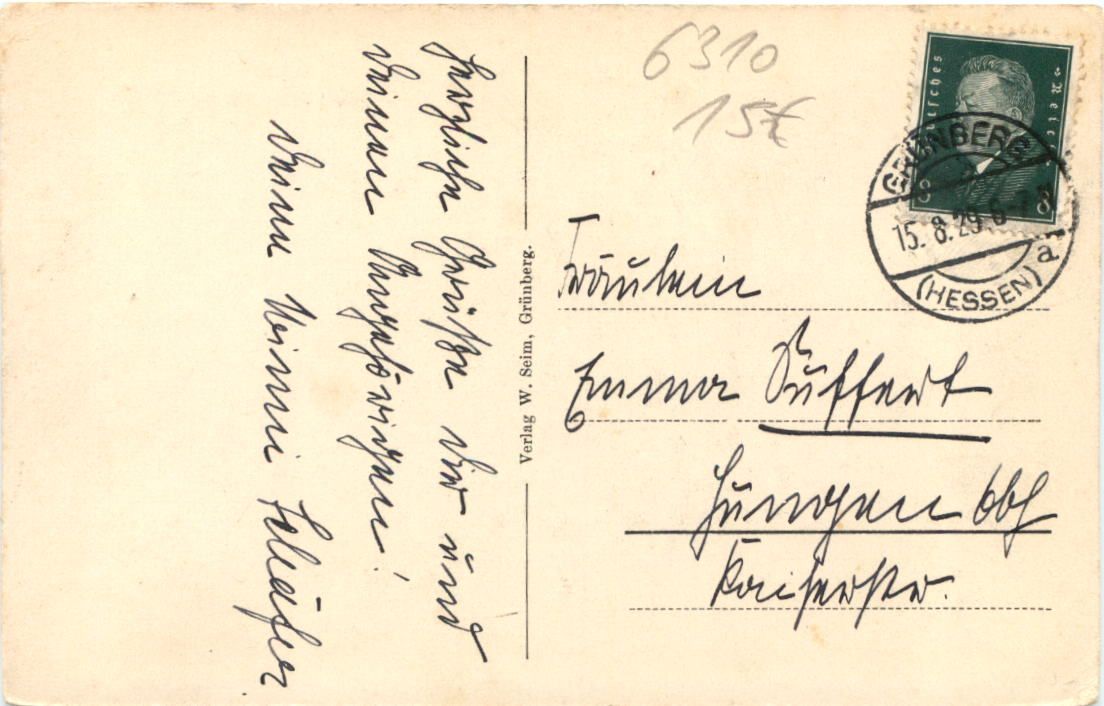 Herzliche Grüße Dir und
Deinen Angehörigen!
Deine Minni Schäfer.
Verlag W. Seim, Grünberg.
6310
15€
Deutsches Reich
8 8
GRÜNBERG
15.8.29.6-7
(HESSEN) a
Fräulein
Emma Suffert
Hungen Obh
Kaiserstr.